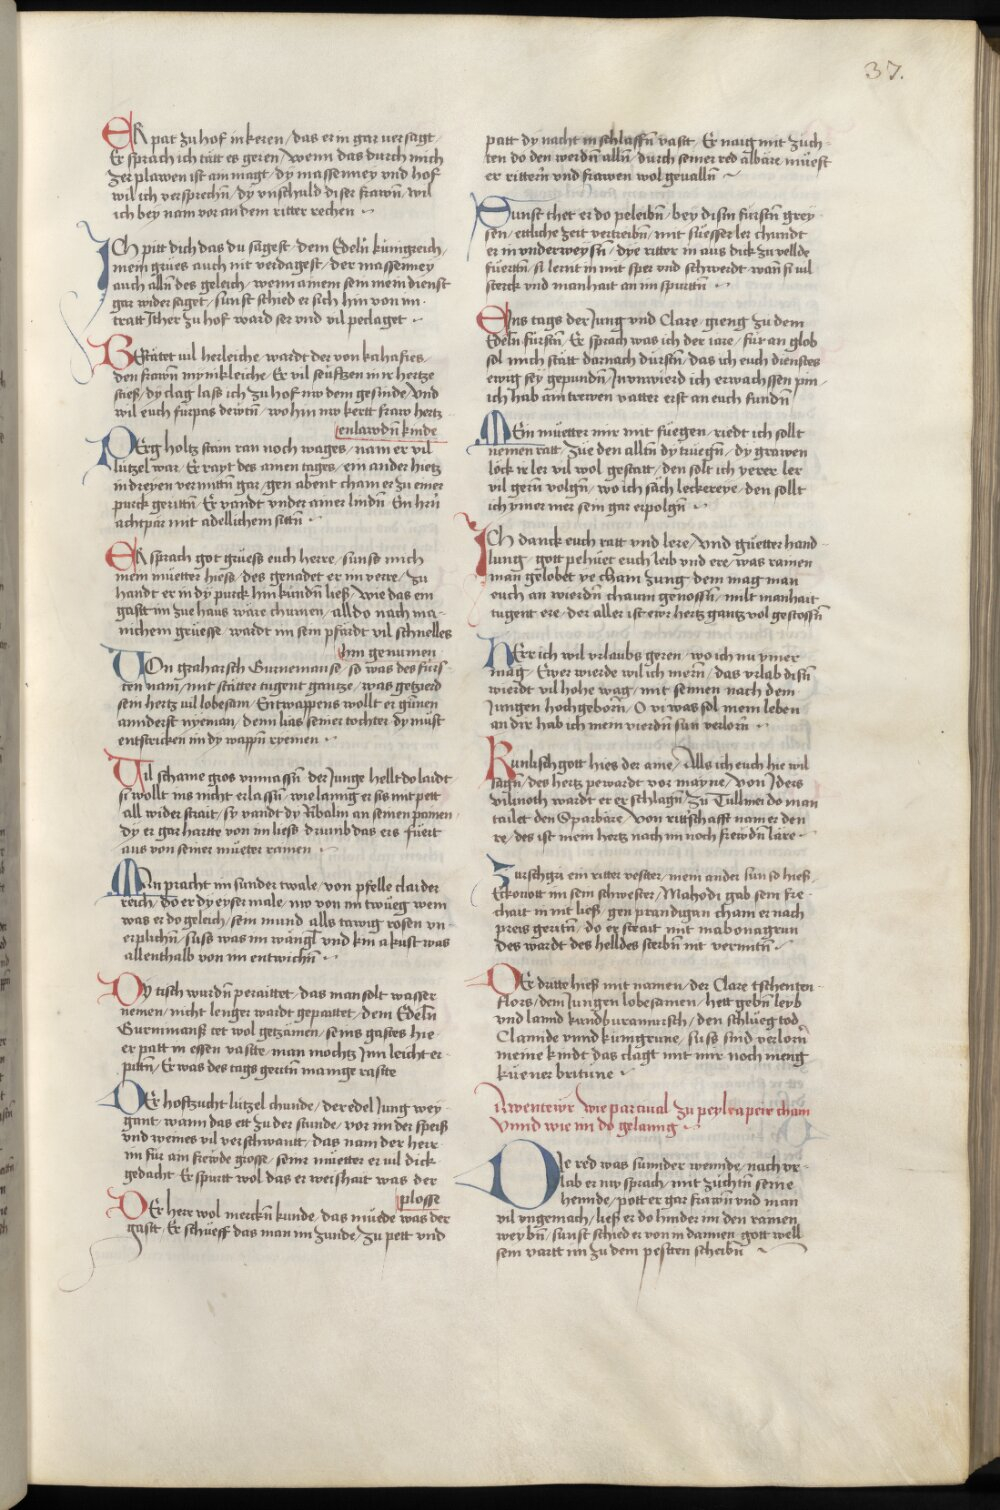 37.
ER pat zu hof in keren / das er in gar versagt /
Er sprach ich tätt es geren / wenn das durch mich
zerplawen ist am magt / dy massenney vnd hof
wil ich versprechn / dy vnschuld diser frawn / wil
ich bey nam vor an dem ritter rechen
ICh pitt dich das du sagest / dem Edeln künigreich /
mein grües auch nit verdagest / der massenney
auch alln des geleich / wenn ainem sein mein dienst
gar wider saget / sunst schied er sich hin von im ·
tratt Ither zu hof ward ser vnd vil peclaget
BEstätet vil herleiche / wardt der von kahafies /
den frawn mynikleiche / Er vil seüftzen in ir hertze
stieß / dy clag lass ich zu hof nw dem gesinde / vnd
wil euch fürpas dewtn / wo hin nw kertt fraw hertz
enlawdn kinde
PErg holtz stain ran noch wages / nam er vil
lützel war / Er rayt des ainen tages / ein ander hietz
in dreyen vermittn gar / gen abent cham er zu einer
purck gerittn / Er vandt vnder ainer lindn / Ein hrn
achtpar mit adellichem sittn
ER sprach got grüess euch herre / sunst mich
mein müetter hiess / des genadet er im verre / zu
handt er in dy purck hin kündn ließ / wie das ein
gastt im zue haus wäre chumen / alldo nach ma-
nichem grüesse / wardt im sein pfärdt vil schnelles
hin genumen
VOn graharsch Gurnemanse / so was des fürs-
ten nam / mit stätter tugent gantze / was getzierd
sein hertz vil lobesam / Entwappens wollt er günen
annderst nyeman / denn lias seiner tochter / dy must
entstricken im dy wappn ryemen
VIl schame gros vnmassn / der Junge hellt do laidt
si wollt ins nicht erlassn / wie lanng er sis mit pett
all wider strait / sy vandt dy Ribalin an seinen painen
dy er gar hartte von im ließ / drumb das ers füert
aus von seiner müeter ramen
MAn pracht im sunder twale / von pfelle claider
reich / do er dy eyser male / nw von im twüeg wem
was er do geleich / sein mund alls tawig rosen vn-
erplichn / süss was im wängl vnd kin a kust was
allenthalb von im entwichn
DY tisch wurdn peraittet / das man solt wasser
nemen / nicht lenger wardt gepaittet / dem Edeln
Gurnimansz tet wol getzämen / seins gastes hie
er patt in essen vastte / man mochtz Inn leicht er-
pittn / Er was des tags gerittn mainge rastte
DEr hoftzucht lützel chunde / der edel Jung wey-
gant / wann das ett zu der stunde / vor im der speiß
vnd weines vil verschwantt / das nam der herr
im für ain frewde grosse / seinr müetter er vil dick
gedacht Er spürtt wol das er weishait was der
plosse
DEr herr wol merckn kunde / das müede was der
gastt / Er schüeff das man im zunde / zu pett vnd
patt dy nacht in schlaffn vastt / Er naig mit züch-
ten do den werdn alln / durch seiner red albäre / müest
er rittern vnd frawen wol geualln
SUnst thet er do peleibn / bey disem fürstn grey-
sen / ettliche zeit vertreibn / mit süesser ler chundt
er in vnderweysn / dye ritter in aus dick zu vellde
füertn / si lernt in mit sper vnd schwerdt / wan si vil
sterck vnd manhait an im spürttn
EIns tags der Jung vnd Clare / gieng zu dem
Edeln fürstn / Er sprach was ich der iare / für an glob
sol mich stätt darnach dürstn / das ich euch dienstes
ewig sey gepundn / Jn vnwierd ich erwachssen pin /
ich hab ain trewen vatter erst an euch fundn
MEin müetter mir mit füegen / riedt ich sollt
nemen ratt / Zue den alltn dy truegn / dy grawen
löck ir ler vil wol gestatt / den solt ich verer ler
vil gern volgn / wo ich säch leckereye / den sollt
ich ymer mer sein gar erpolgn
ICh danck euch ratt vnd lere / vnd güetter hand-
lung / gott pehüet euch leib vnd ere / was ramen
man gelobet ye cham zung / dem mag man
euch an wierdn chaum genossn / milt manhait
tugent ere / der aller ist ewr hertz gantz vol gestossn
HErr ich wil vrlaubs geren / wo ich nu ymer
mag / Ewer wierde wil ich mern / das vrlab disn
wierdt vil hohe wag / mit seinen nach dem
Jungen hochgeborn / O vi was sol mein leben
an dir hab ich mein vierdn sun verlorn
KUnlischgott hies der aine / Alls ich euch hie wil
sagn / des hertz pewardt vor mayne / von Iders
vil noth wardt er erschlagn / zu Tullmei do man
tailet den Sparbäre / von rittschafft nam er den
re / des ist mein hertz nach im noch frewdn läre
Zurschgri ein ritter vestter / mein ander sun so hieß /
Eckonott im sein schwester / Mahodi gab sein fre-
chait in nit ließ / gen prandigan cham er nach
preis gerittn / do er strait mit mabonagrun
des wardt des helldes sterbn nit vermitn
DEr dritte hieß mit namen / der Clare tschenten-
flors / dem Jungen lobesamen / hett gebn leyb
vnd lannd kundwiramursch / den schlüeg tod
Clamide vnnd küngrune / süss sind verlorn
meine kindt das clagt mit mir noch meng
küener britune
Awentewr wie parciual zu peylrapeire cham
vnnd wie im do gelanng
DIe red was sunnder wennde / nach vr-
lab er nw sprach / mit züchtn seine
hennde / pott er gar frawn vnd man
vil vngemach / ließ er do hinder im den rainen
weybn / sunst schied er von in dannen / gott well
sein vartt im zu dem pestten scheibn